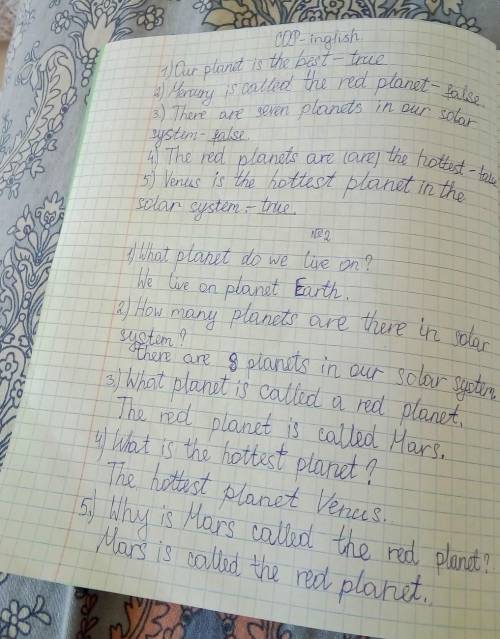 СОР-inglish.
1) Our planet is the best - true
2) Mercury is called the red planet - false.
3) There are seven planets in our solar
system - false.
4) The red planets are (are) the hottest - false
5) Venus is the hottest planet in the
solar system. - true.
№2
1) What planet do we live on?
We live on planet Earth.
2) How many planets are there in solar
system?
There are 8 planets in our solar system.
3) What planet is called a red planet.
The red planet is called Mars.
4) What is the hottest planet?
The hottest planet Venus.
5) Why is Mars called the red planet?
Mars is called the red planet.